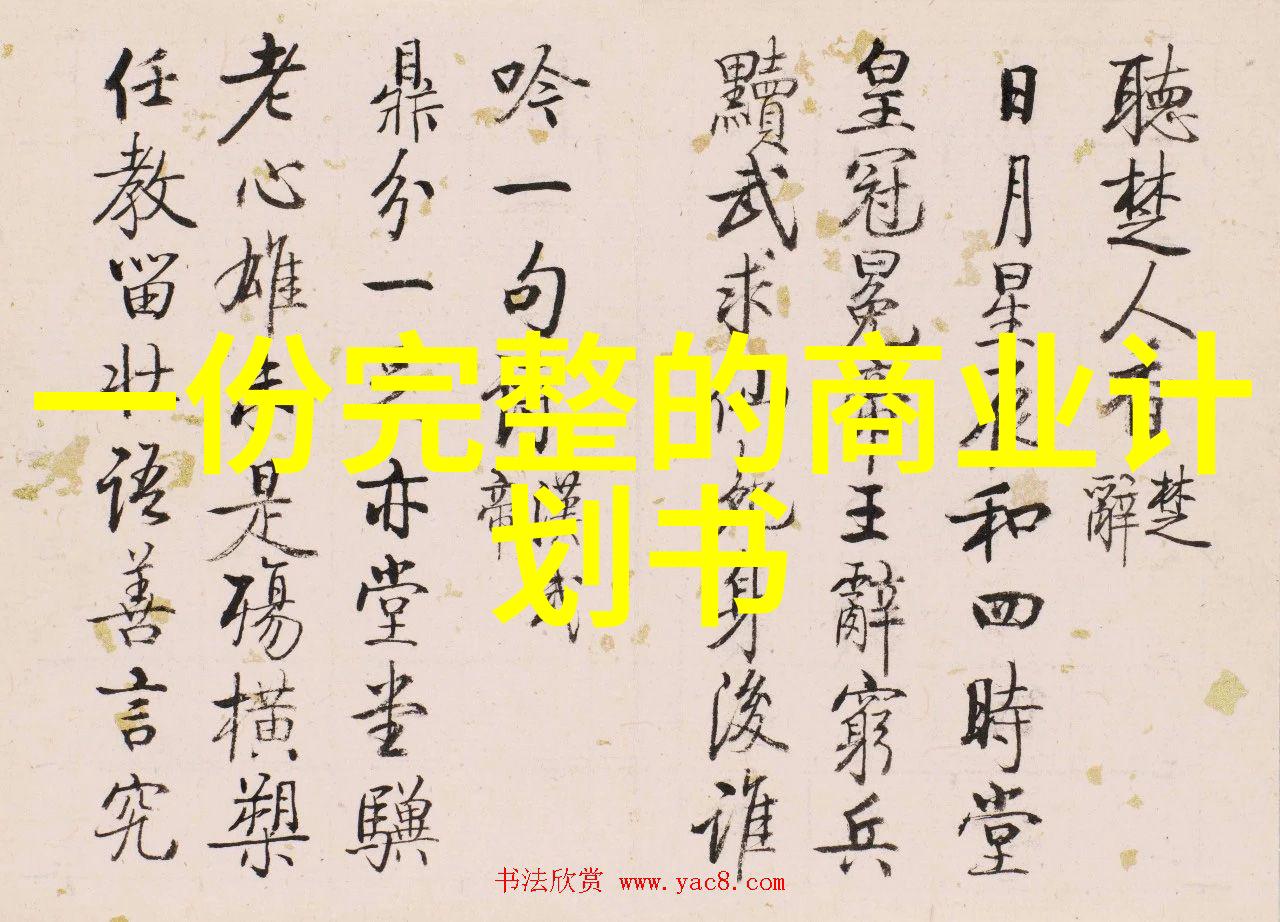 聽楚人
楚辭
日月星辰和四時堂
皇冠冕王辭窮兵
黷武求仙身後誰
吟一句
漢武帝
鼎分一亦堂堂驥
老心雄是殤橫槊
任教留壯語善言究
一份完整的商业计
划书
书法欣赏 www.yac8.com